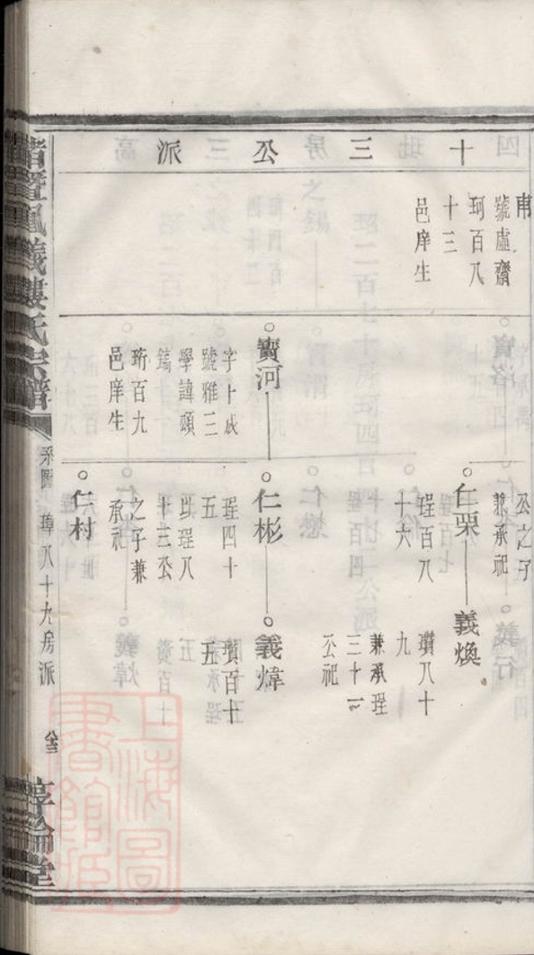 十三公派
甫
號虛齋
珂百八
十三
邑庠生
寶河
字十成
號雅三
學諱頌
鎬
珩百九
邑庠生
公之子
兼承祀
仁栗
珵百八
十六
義煥
瓚八十
九
兼承珵
三十一
公祀
仁彬
珵四十
五
以珵八
十三公
之子兼
承祀
義煒
瓚百十
五
仁村
諸暨鳳儀樓氏宗譜
系圖 璋八十九房派
上海圖
書館藏